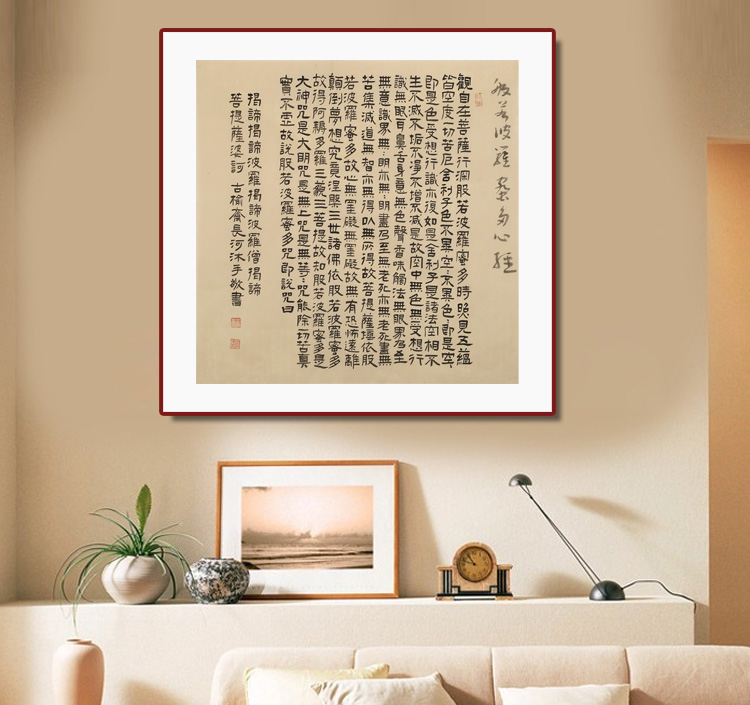 般若波羅蜜多心經
觀自在菩薩行深般若波羅蜜多時照見五蘊
皆空度一切苦厄舍利子色不異空〻不異色〻即是空〻
即是色受想行識亦復如是舍利子是諸法空相不
生不滅不垢不淨不增不減是故空中無色無受想行
識無眼耳鼻舌身意無色聲香味觸法無眼界乃至
無意識界無〻明亦無〻明盡乃至無老死亦無老死盡無
苦集滅道無智亦無得以無所得故菩提薩埵依般
若波羅蜜多故心無罣礙無罣礙故無有恐怖遠離
顛倒夢想究竟涅槃三世諸佛依般若波羅蜜多
故得阿耨多羅三藐三菩提故知般若波羅蜜多是
大神咒是大明咒是無上咒是無等〻咒能除一切苦真
實不虛故說般若波羅蜜多咒即說咒曰
揭諦揭諦波羅揭諦波羅僧揭諦
菩提薩婆訶 古榆齋長河沐手敬書